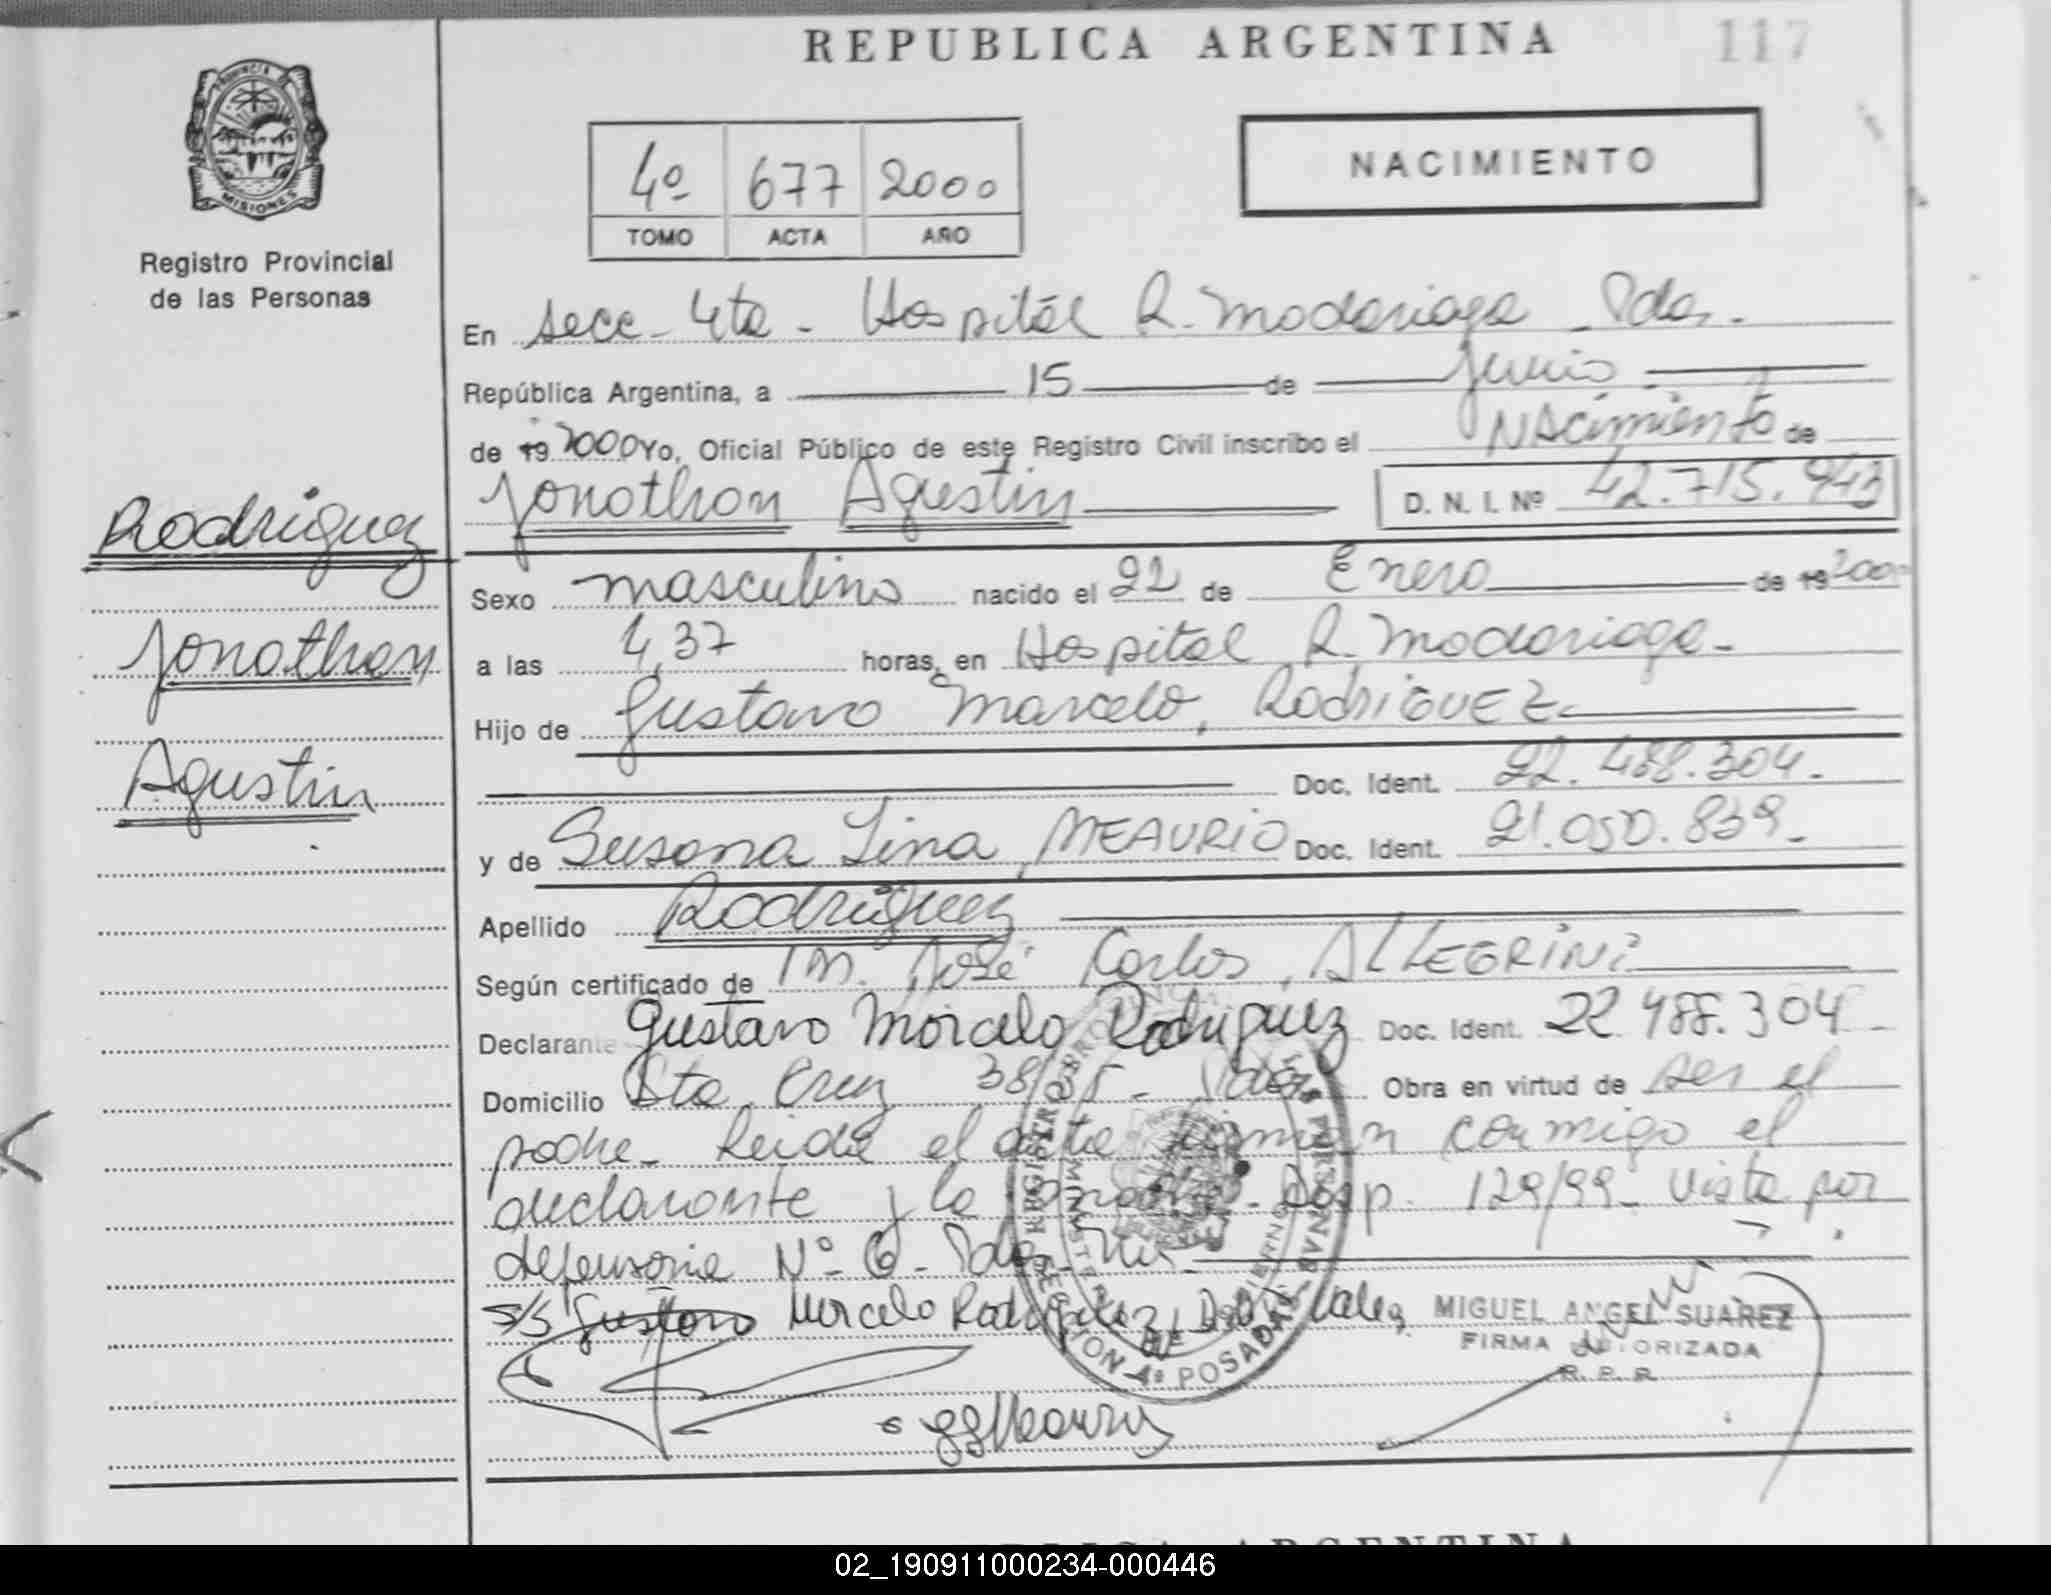 REPUBLICA ARGENTINA
117
PROVINCIA DE
MISIONES
Registro Provincial
de las Personas
4º 677 2000
TOMO ACTA AÑO
NACIMIENTO
En Secc - 4ta - Hospital R. Madariaga - Pdas.
República Argentina, a 15 de Junio
de 19 2000 Yo, Oficial Público de este Registro Civil inscribo el Nacimiento de
Jonathan Agustin D. N. I. Nº 42.715.943
Rodriguez
Jonathan
Agustin
Sexo masculino nacido el 22 de Enero de 19 2000
a las 4,37 horas, en Hospital R. Madariaga -
Hijo de Gustavo Marcelo, RODRIGUEZ
Doc. Ident. 22.488.304.
y de Susana Lina, MEAURIO Doc. Ident. 21.050.839-
Apellido Rodriguez
Según certificado de M. José Carlos, ALLEGRINI
Declarante Gustavo Marcelo Rodriguez Doc. Ident. 22.488.304-
Domicilio Sta. Cruz Pdas. Obra en virtud de ser el
padre - Leida el acta firman conmigo el
declarante y la madre - Disp. 129/99 - Vista por
defensoria Nº 6 - Pdas - Mnes.
S/S Gustavo Marcelo Rodriguez, Vale,
MIGUEL ANGEL SUAREZ
FIRMA AUTORIZADA
R. P. P.
SECCION 4ª POSADAS
REPUBLICA ARGENTINA
02_190911000234-000446